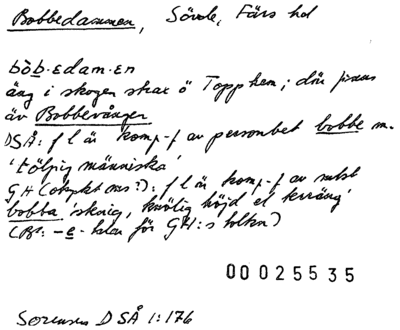 Bobbedammen, Sövde, Färs hd
bòb·edam·en
äng i skogen strax ö Topphem; där finns
äv Bobbevången
DSÅ: fl är komp-f av personbet bobbe m.
'tölpig människa'
GH (okykt ms?): fl är komp-f av subst
bobba 'skoig, knölig höjd el terräng'
(Bf: -e- klar för GH:s tolkn)
00025535
Sorensen DSÅ 1:176